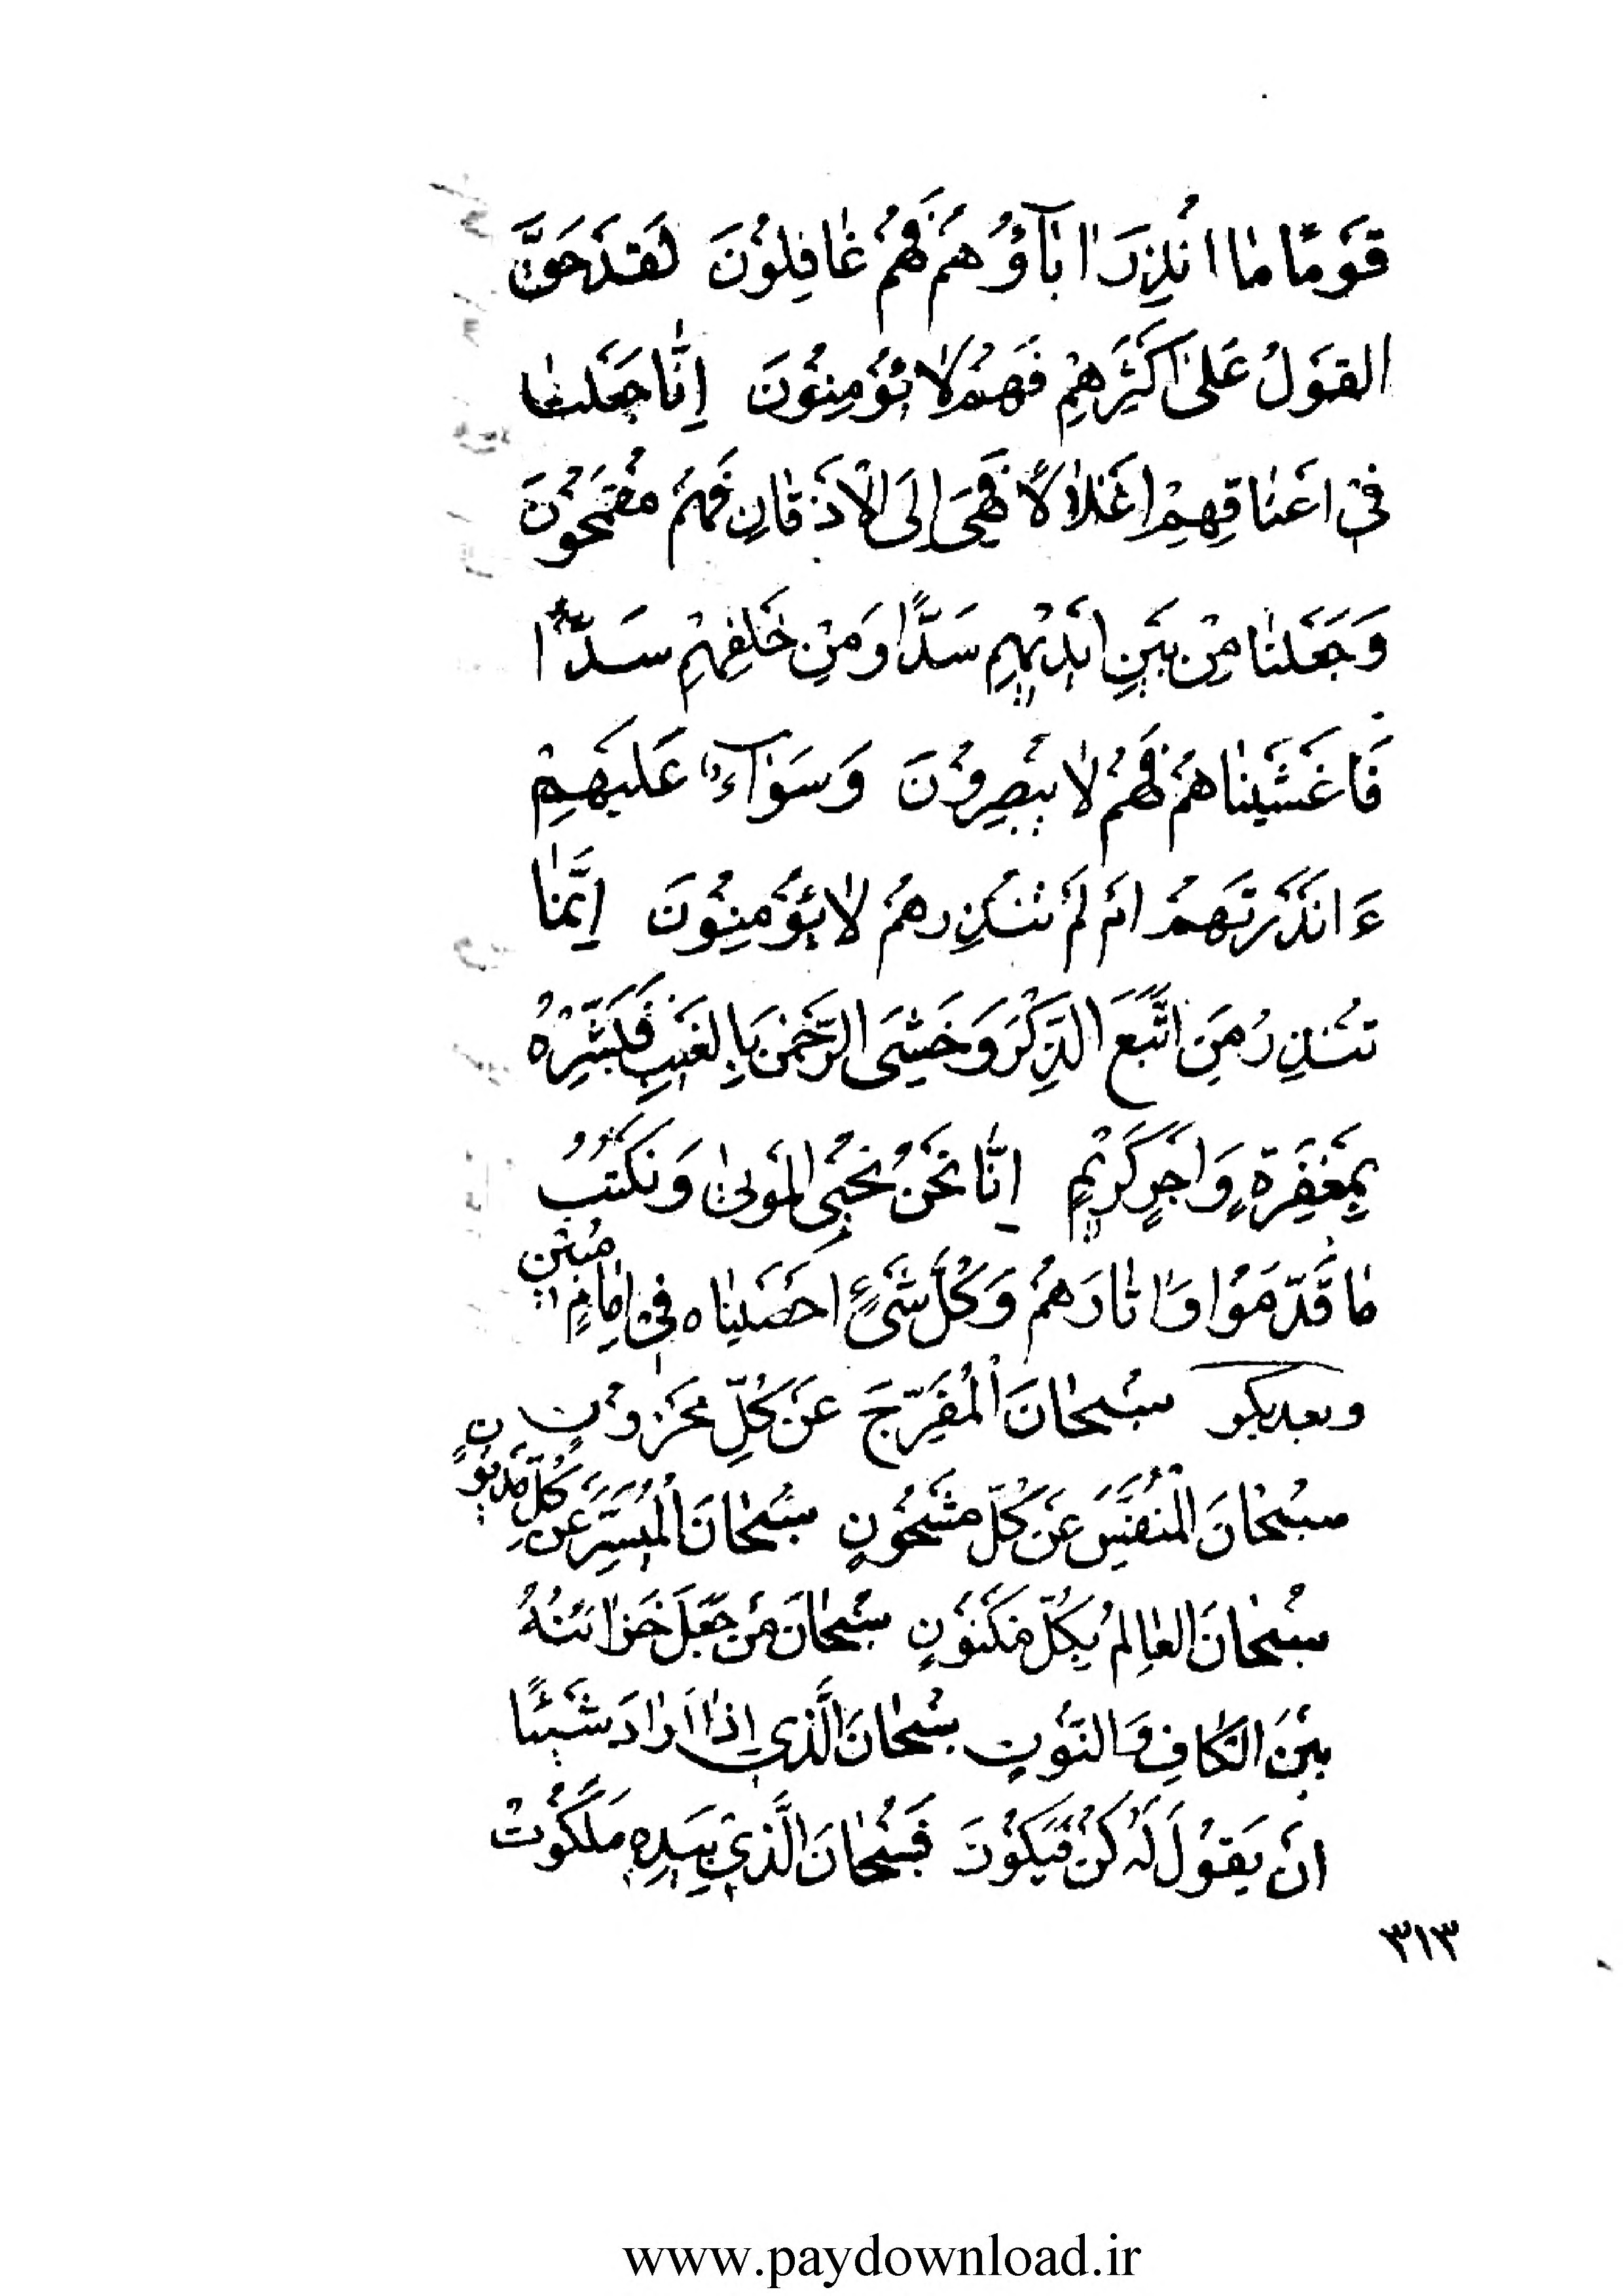 قَوْمًا مٰا اُنْذِرَ اٰبٰآؤُهُمْ فَهُمْ غٰافِلُونَ لَقَدْ حَقَّ
القَوْلُ عَلىٰ اَكْثَرِهِمْ فَهُمْ لٰا يُؤْمِنُونَ اِنّٰا جَعَلْنٰا
فى اَعْنٰاقِهِمْ اَغْلٰالًا فَهِىَ اِلَى الْاَذْقٰانِ فَهُمْ مُقْمَحُونَ
وَجَعَلْنٰا مِنْ بَيْنِ اَيْدِيهِمْ سَدًّا وَمِنْ خَلْفِهِمْ سَدًّا
فَاَغْشَيْنٰاهُمْ فَهُمْ لٰا يُبْصِرُونَ وَسَوٰآءٌ عَلَيْهِمْ
ءَاَنْذَرْتَهُمْ اَمْ لَمْ تُنْذِرْهُمْ لٰا يُؤْمِنُونَ اِنَّمٰا
تُنْذِرُ مَنِ اتَّبَعَ الذِّكْرَ وَخَشِىَ الرَّحْمٰنَ بِالْغَيْبِ فَبَشِّرْهُ
بِمَغْفِرَةٍ وَاَجْرٍ كَرِيْمٍ اِنّٰا نَحْنُ نُحْيِى الْمَوْتىٰ وَنَكْتُبُ
مٰا قَدَّمُوا وَاٰثٰارَهُمْ وَكُلَّ شَىْءٍ اَحْصَيْنٰاه فى اِمٰامٍ مُبينٍ
وبعد بگو سُبْحٰانَ الْمُفَرِّجَ عَنْ كُلِّ مَحْزُونٍ
سُبْحٰانَ الْمُنَفِّسَ عَنْ كُلِّ مَشْحُونٍ سُبْحٰانَ الْمُيَسِّرَ عَنْ كُلِّ مَدْيُونٍ
سُبْحٰانَ العٰالِمُ بِكُلِّ مَكْنُونٍ سُبْحٰانَ مَنْ جَعَلَ خَزٰائِنُهُ
بَيْنَ الْكٰافِ وَالنُّونِ سُبْحٰانَ الَّذي اِذٰا اَرٰادَ شَيْئًا
اَنْ يَقُولَ لَهُ كُنْ فَيَكُونَ فَسُبْحٰانَ الَّذي بِيَدِهِ مَلَكُوتْ
۳۱۳
www.paydownload.ir